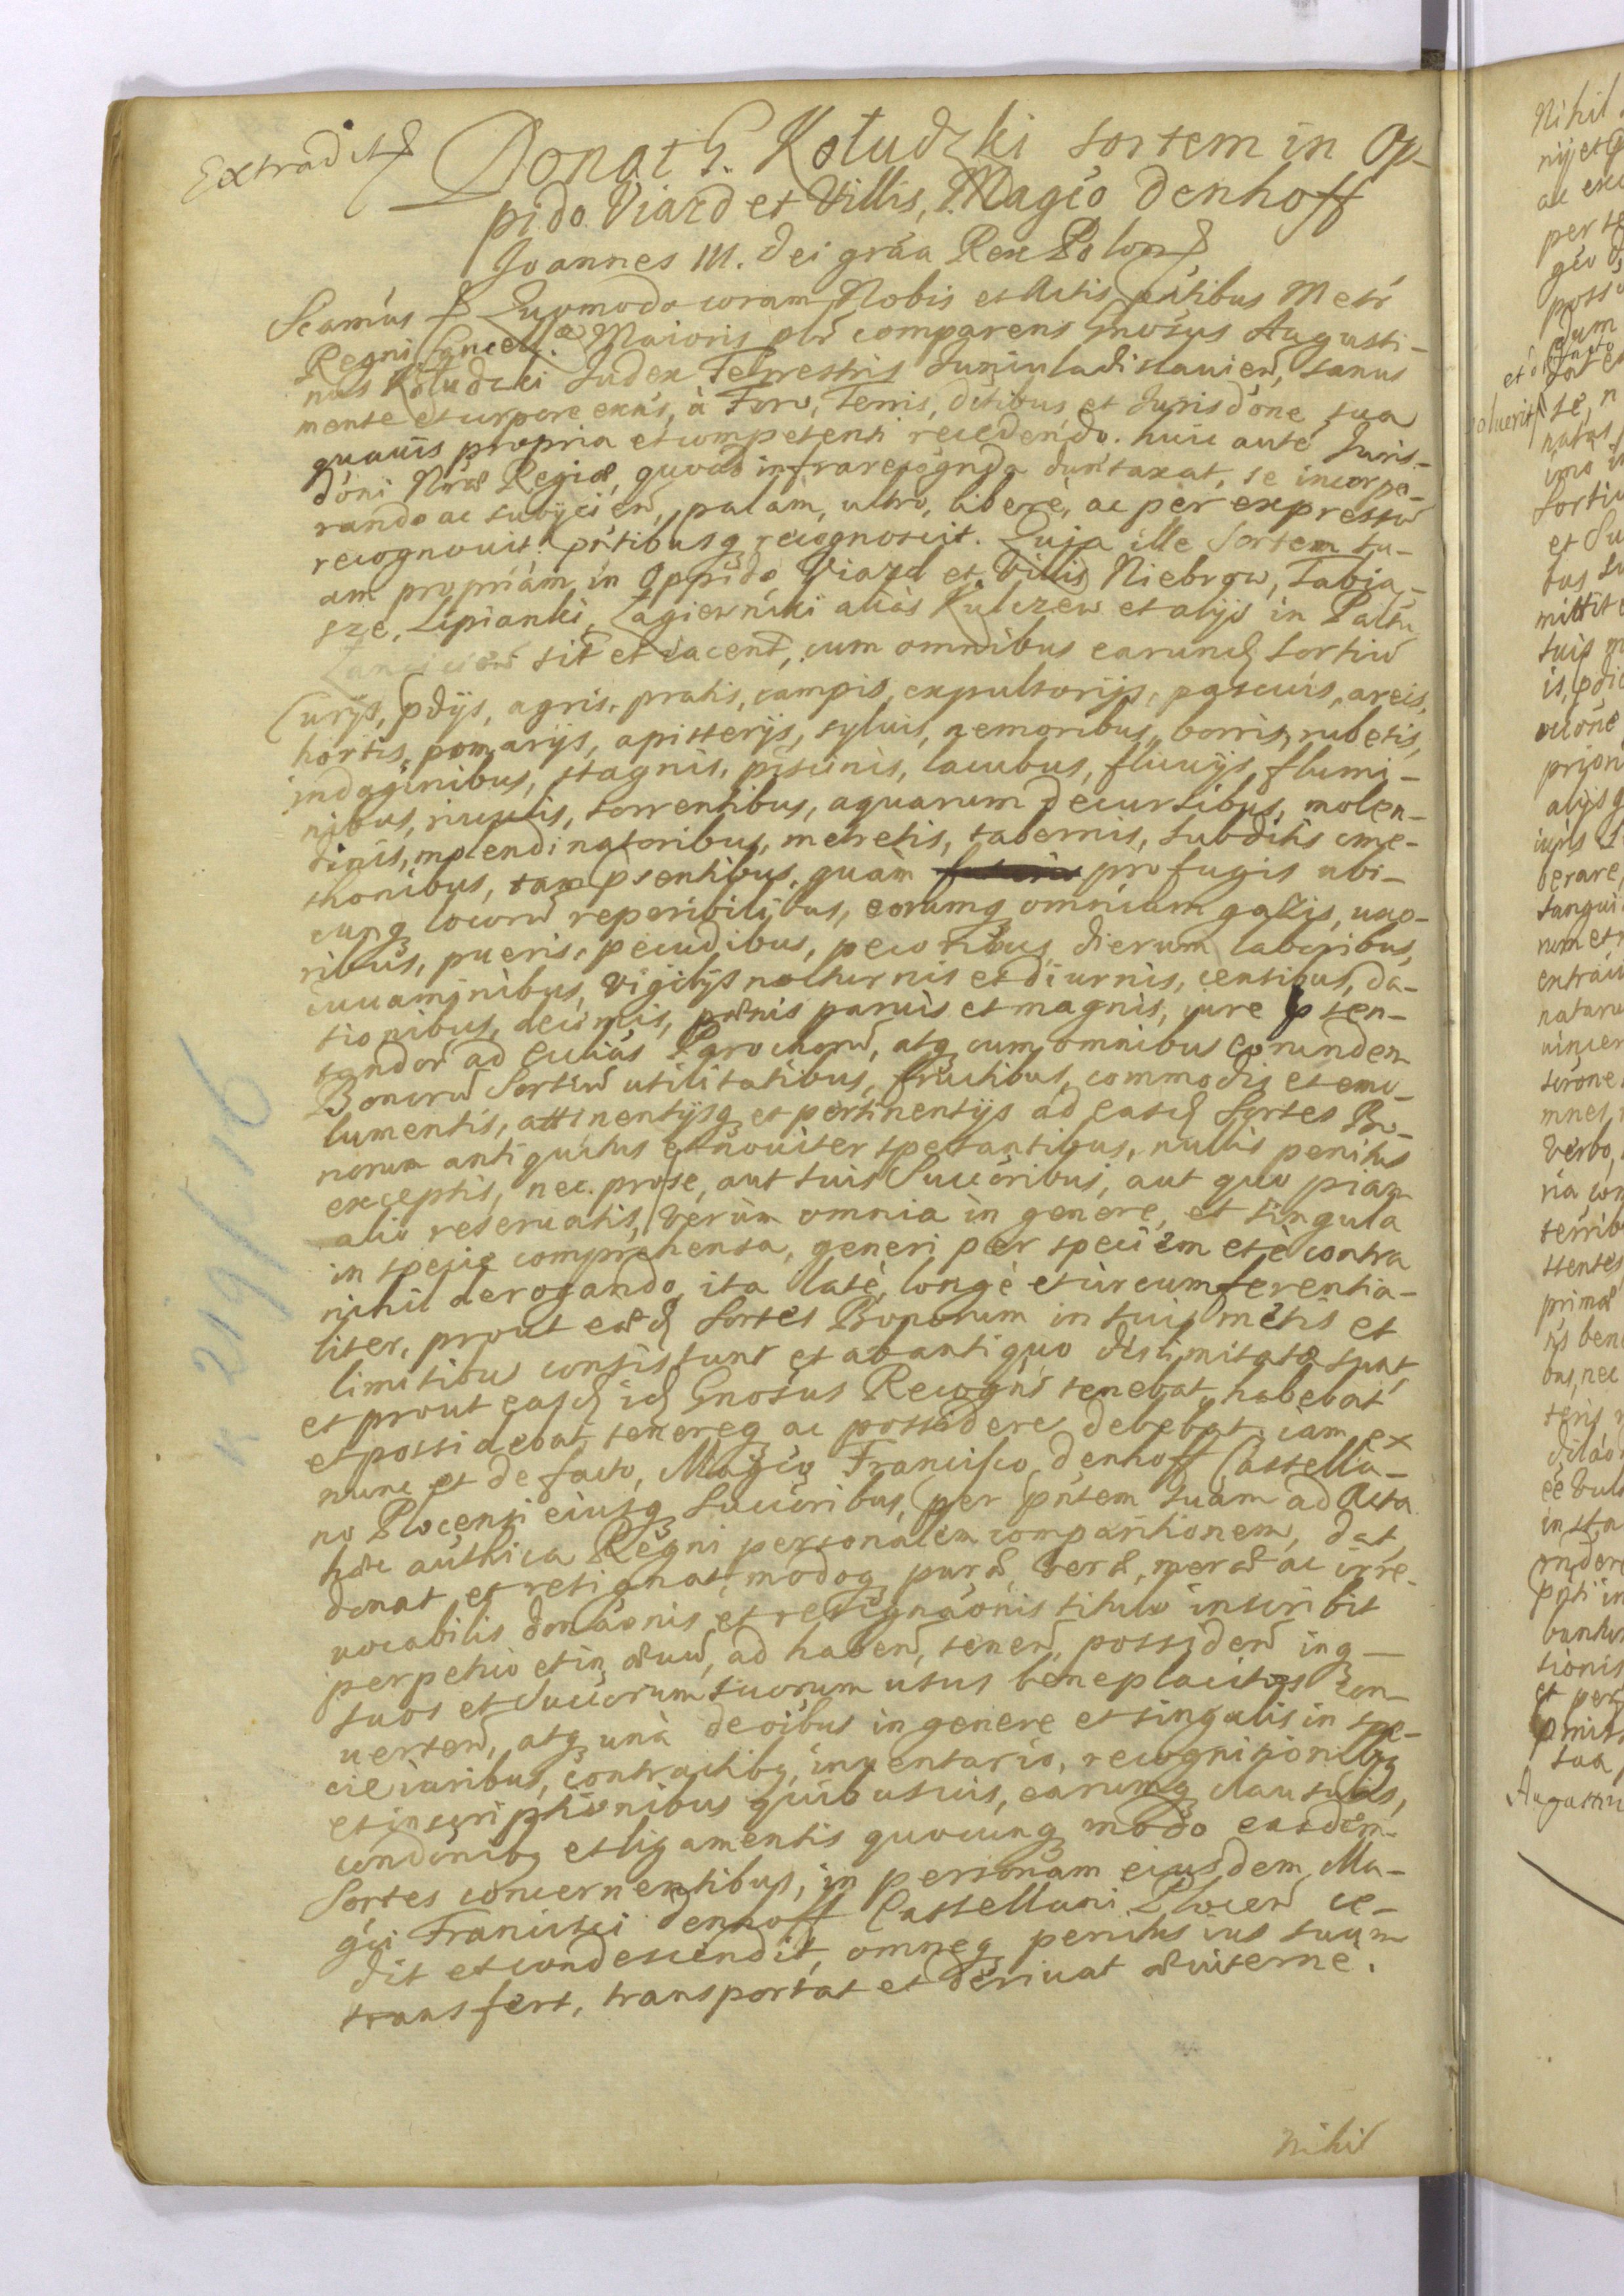 Extradit
Donat G. Kołudzki sortem in Op-
pido Viazd et Villis, Magco Denhoff
Joannes III. Dei gráa Rex Polon
Seamus Quomodo coram Nobis et Actis pntibus Metr
Regni Cancell. Maioris plr comparens Gnosus Augusti-
nus Kołudzki Judex Terrestris Juniuladislauien, sanus
mente et corpore exns, à Foro, Terris, ditibus et Jurisdone sua
quauis propria et competenti recedendo. huic aute Juris-
doni Nrae Regiae, quoad infrarecognda duntaxat, se incorpo-
rando ac subijcien, palàm, ultro, liberè, ac per expressu
recognouit. pntibusq recognoscit. Quia ille Sortem su-
am propriam in Oppido Viazd et Villis Niebrow, Tobia-
sze, Lipianki, Zagiewniki aliàs Kulczew et alijs in Paltu
Lancicien sit et iacent, cum omnibus earund sortiu
Curijs, pdijs, agris, pratis, campis, expulsorijs, pascuis, areis,
hortis, pomarijs, apisterijs, syluis, nemoribus, borris, rubetis,
indaginibus, stagnis, piscinis, lacubus, fluuijs, flumi-
nibus, riuulis, torrentibus, aquarum decursibus, molen-
dinis, molendinatoribus, metretis, tabernis, subditis cme-
thonibus, tam psentibus, quàm profugis ubi-
cunq locoru reperibilibus, eorumq omnium gazis, uxo-
ribus, pueris, pecudibus, pecoribus, dierum laboribus,
iuuaminibus, vigilijs nocturnis et diurnis, censibus, da-
tionibus, decimis, paenis paruis et magnis, iure psten-
tandor ad Ecclias Parochoru, atq cum omnibus Eorundem
Bonoru Sortiu utilitatibus, fructibus, commodis et emo-
lumentis, attinentijsq et pertinentijs ad easd Sortes Bo-
norum antiquitus et nouiter spectantibus, nullis penitus
exceptis, nec pro se, aut suis Succoribus, aut quo piam
alio reseruatis, Verùm omnia in genere, et singula
in specie comprehensa, generi per speciem et è contra
nihil derogando, ita latè, longè et circumferentia-
liter, prout eaed Sortes Bonorum in suis metis et
limitibus consistunt et ab antiquo dislimitatae sunt,
et prout easd id Gnosus Recogns tenebat, habebat
et possidebat, tenereq ac possidere debebat, iam ex
nunc et de facto, Magco Francisco Denhoff Castella-
no Plocensi eiusq Succoribus, per pntem suam ad Acta
haec authica Regni personalem comparitionem, dat,
donat et resignat, modoq purae, verae, merae ac irre-
uocabilis donaonis et resignaonis titulo inscribit
perpetuo et in aeuu, ad haben, tenen, possiden inq
suos et Succorum suorum usus beneplacitos con-
uerten, atq unà de oibus in genere et singulis in spe-
cie iuribus, contractibq, inuentario, recognitionibq
et inscriptionibus quibusuis, earumq clausulis,
condonibq et ligamentis quocunq modo easdem
Sortes concernentibus, in personam eiusdem Ma-
gci Francisci Denhoff Castellani Plocen ce-
dit et condescendit, omneq penitus ius suum
transfert, transportat et deriuat aeuiternè.
Nihil
n 219/6.16